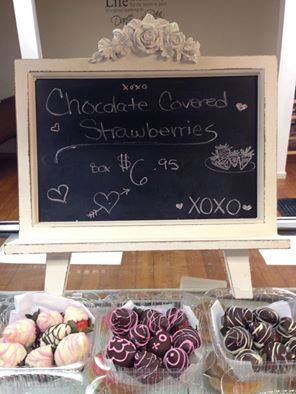 Life
xoxo
Chocolate Covered
Strawberries
Box $6.95
XOXO